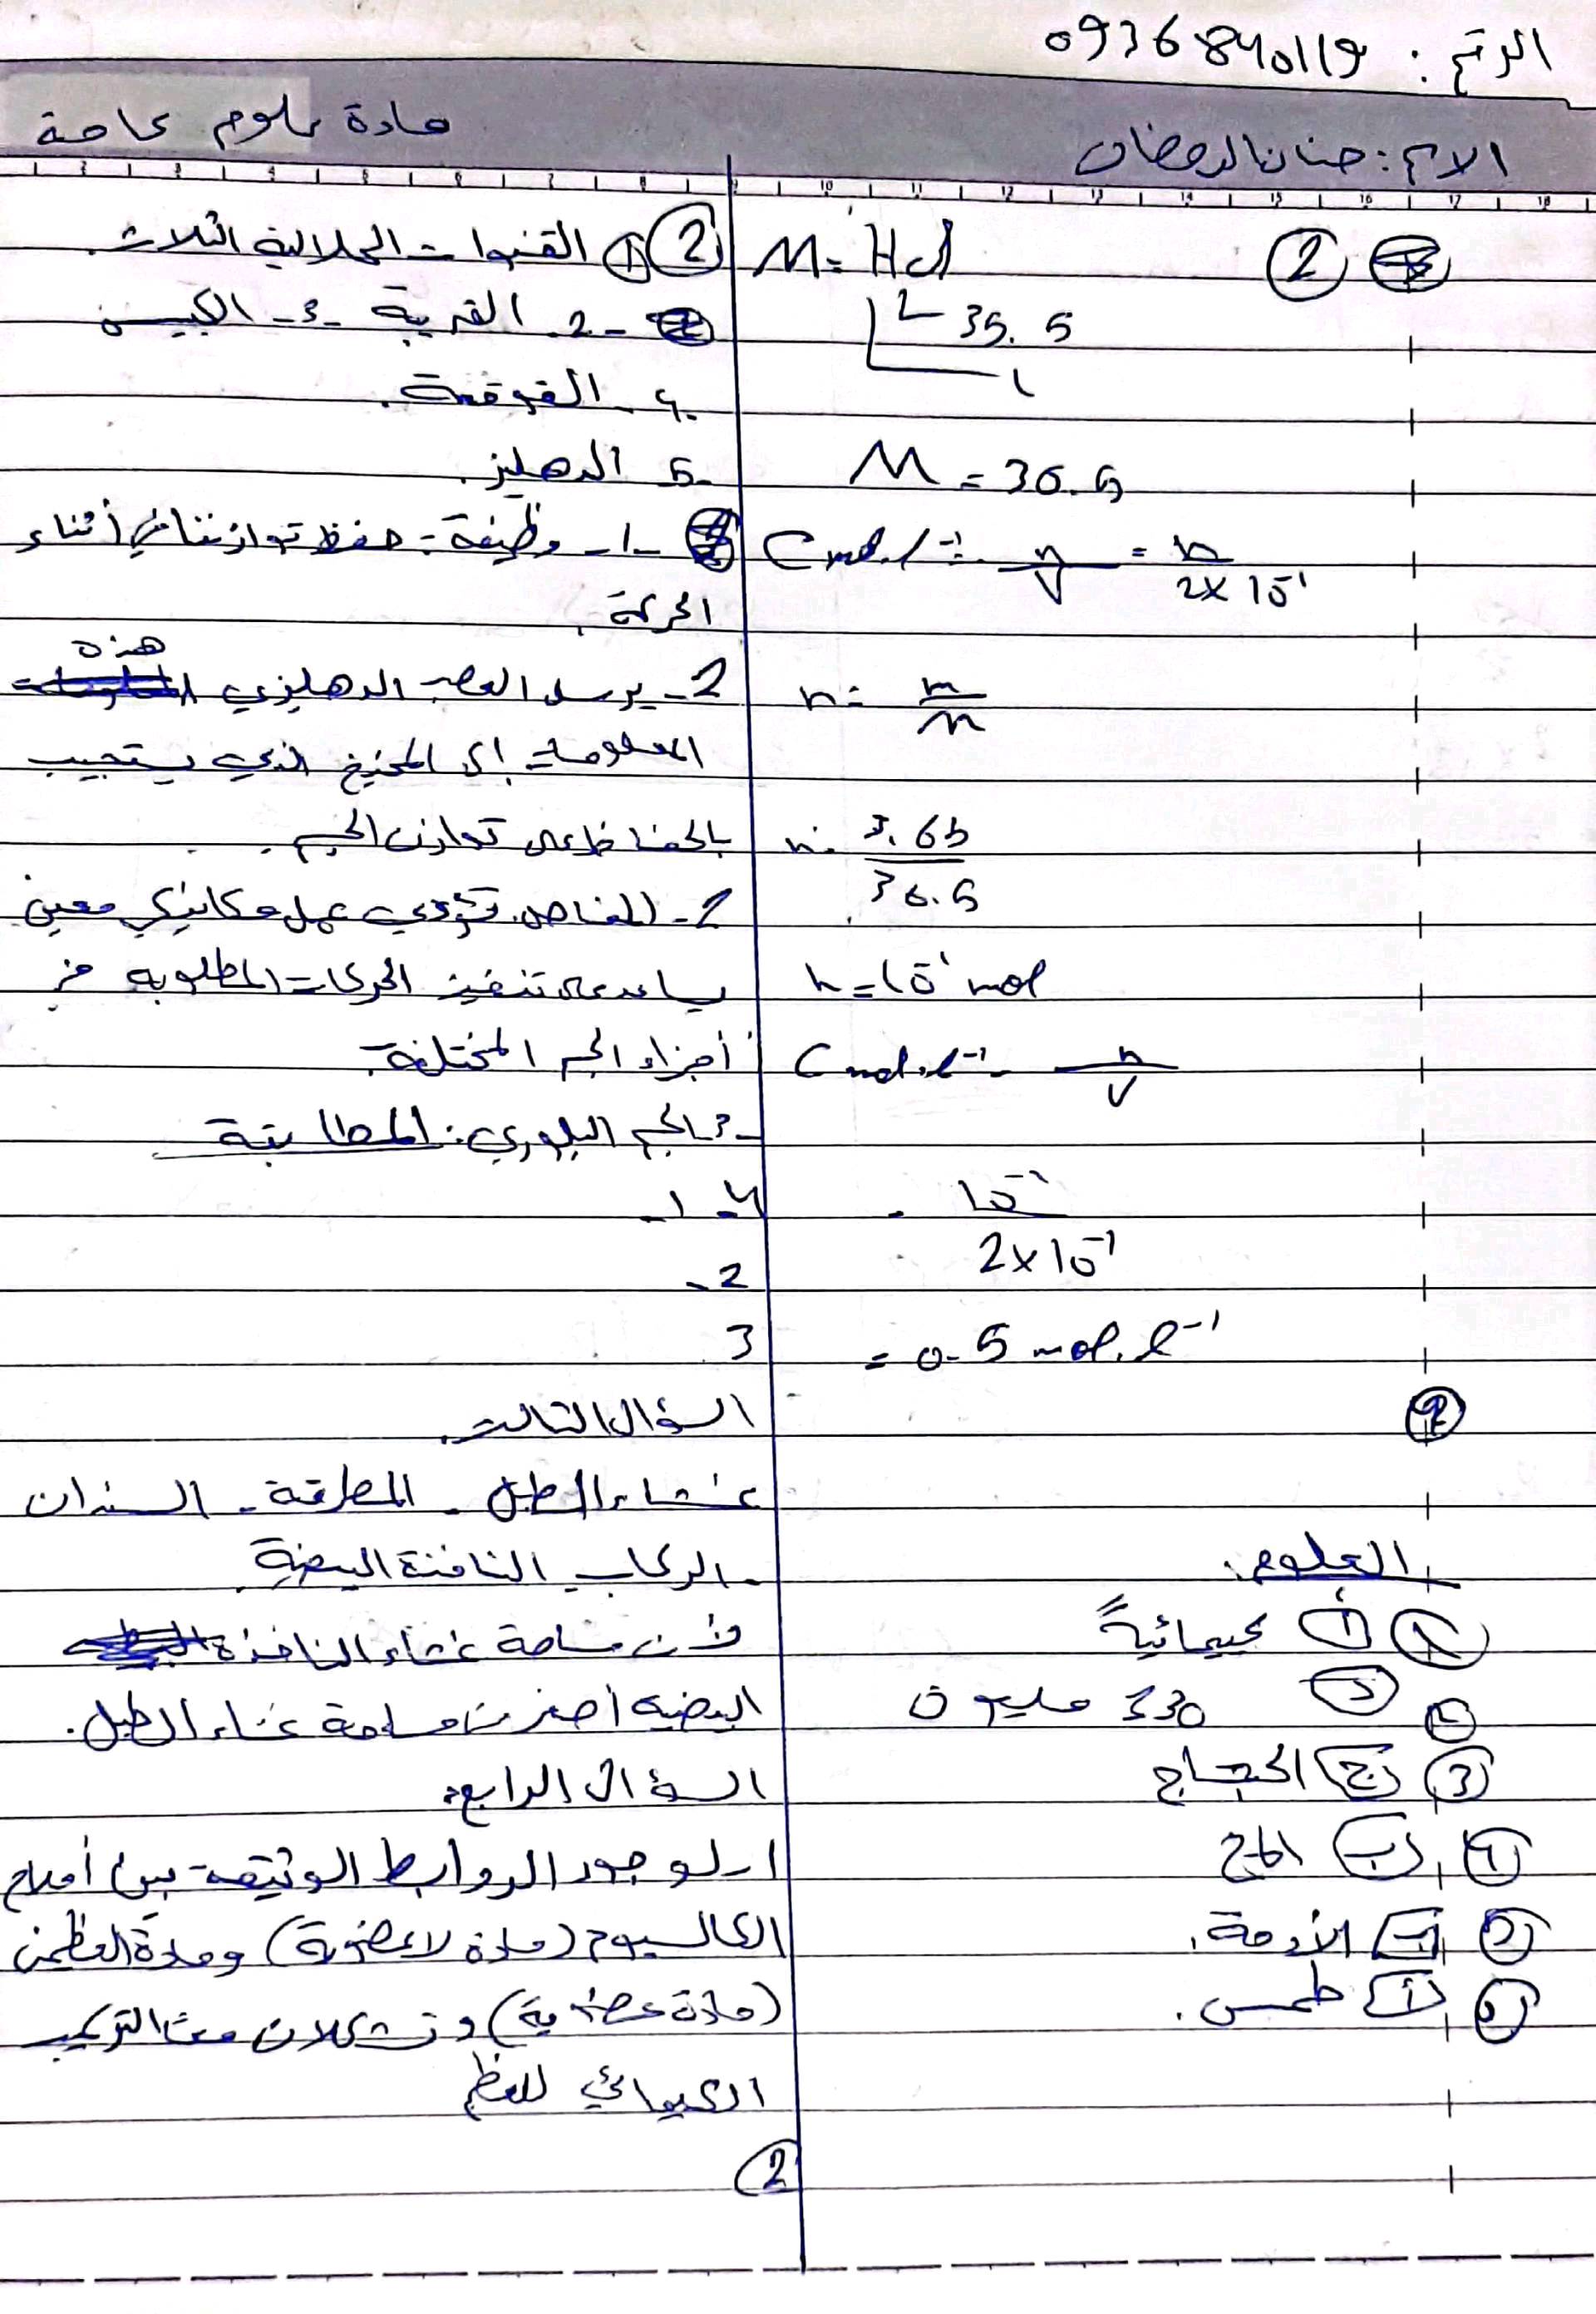 الرقم : 0936840119
الاسم : حنان الرمضان
مادة علوم عامة
2
M = HCl
35.5
1
M = 36.5
C mol.l⁻¹ = n/V = n/2×10⁻¹
n = m/M
n = 3.65/36.5
n = 10⁻¹ mol
C mol.l⁻¹ = n/V
= 10⁻¹/2×10⁻¹
= 0.5 mol.l⁻¹
العلوم
1 أ كيميائية
2 د 330 مليون
3 ج الحجاج
4 ب المح
5 ب الأدمة
6 أ طمس
2 1 القنوات الهلالية الثلاث
2- القريبة 3- الكيس
4- القوقعة
5- الدهليز
1- وظيفة : حفظ توازننا في أثناء
الحركة
2- يرسل العصب الدهليزي هذه
المعلومات إلى المخيخ الذي يستجيب
بالحفاظ على توازن الجسم
2- المفاصل تؤدي عمل ميكانيكي معين
يساعد على تنفيذ الحركات المطلوبة من
أجزاء الجسم المختلفة
3- الجسم البلوري : المطابقة
4- 1-
2-
3
السؤال الثالث
غشاء الطبل - المطرقة - السندان
- الركاب النافذة البيضية
لأن مساحة غشاء النافذة
البيضية أصغر من مساحة غشاء الطبل .
السؤال الرابع :
1- لوجود الروابط الوثيقة بين أملاح
الكالسيوم (مادة لاعضوية) ومادة العظمين
(مادة عضوية) وتشكلان معاً التركيب
الكيميائي للعظم
2